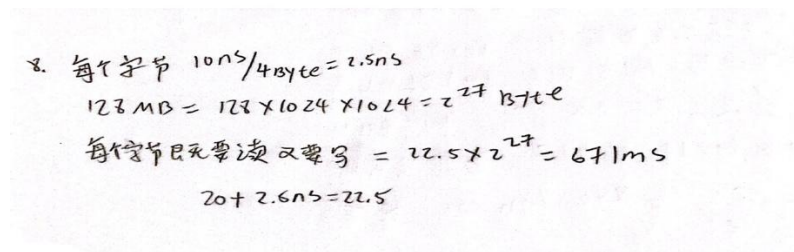 8. 每个字节 10ns/4Byte=2.5ns
128 MB = 128×1024×1024=2^27 Byte
每个字节既要读又要写 = 22.5×2^27 = 671ms
20+2.6ns=22.5